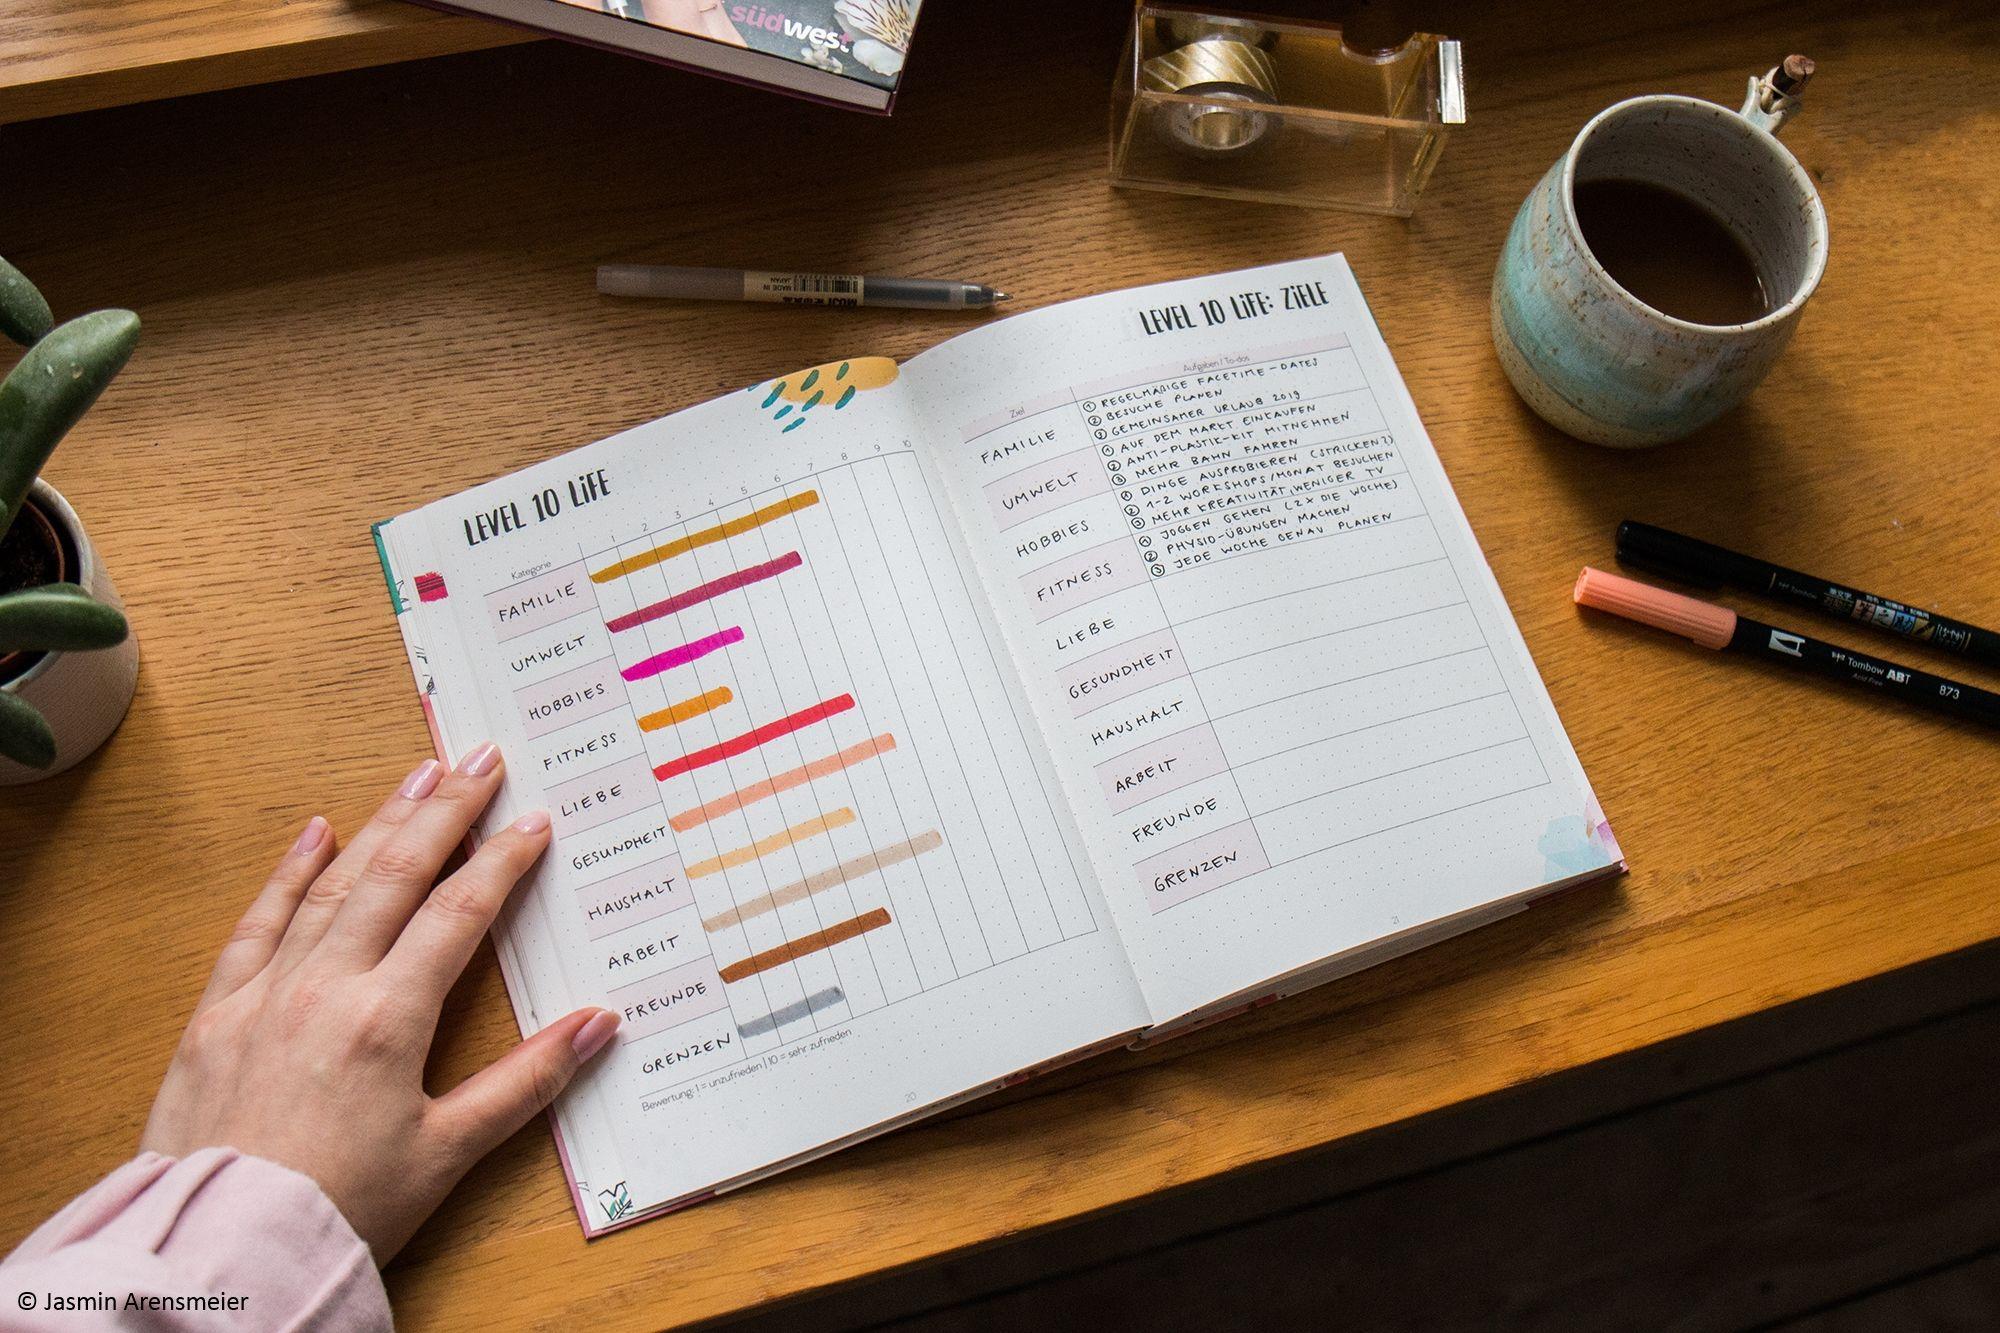 südwest
MUJI 無印良品
MADE IN JAPAN
LEVEL 10 LiFE
Kategorie
1 2 3 4 5 6 7 8 9 10
FAMILIE
UMWELT
HOBBIES
FITNESS
LIEBE
GESUNDHEIT
HAUSHALT
ARBEIT
FREUNDE
GRENZEN
Bewertung: 1 = unzufrieden | 10 = sehr zufrieden
20
LEVEL 10 LiFE: ZiELE
Ziel
Aufgaben / To-dos
FAMILIE
① REGELMÄßIGE FACETIME-DATES
② BESUCHE PLANEN
③ GEMEINSAMER URLAUB 2019
UMWELT
① AUF DEM MARKT EINKAUFEN
② ANTI-PLASTIK-KIT MITNEHMEN
③ MEHR BAHN FAHREN
HOBBIES
① DINGE AUSPROBIEREN (STRICKEN?)
② 1-2 WORKSHOPS/MONAT BESUCHEN
③ MEHR KREATIVITÄT, WENIGER TV
FITNESS
① JOGGEN GEHEN (2X DIE WOCHE)
② PHYSIO-ÜBUNGEN MACHEN
③ JEDE WOCHE GENAU PLANEN
LIEBE
GESUNDHEIT
HAUSHALT
ARBEIT
FREUNDE
GRENZEN
21
Tombow ABT
Acid Free
873
© Jasmin Arensmeier